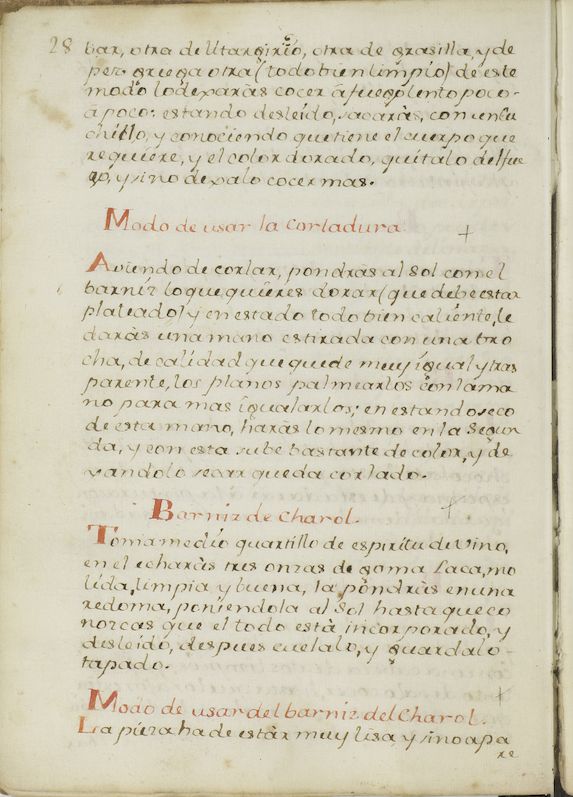 28 bar, otra de litargirio, otra de grasilla, y de
pez griega otra (todo bien limpio) de este
modo lo dexaràs cocer à fuego lento poco
à poco: estando desleido, sacaràs, con un cu
chillo, y conociendo que tiene el cuerpo que
requiere, y el color dorado, quitalo del fue
go, y sino dexalo cocer mas.
Modo de usar la Corladura.
Aviendo de corlar, pondràs al Sol con el
barniz lo que quieres dorar (que debe estar
plateado) y en estado todo bien caliente, le
daràs una mano estirada con una bro
cha, de calidad que quede muy igual y tras
parente, los planos palmearlos con la ma
no para mas igualarlos; en estando seco
de esta mano, haràs lo mesmo en la Segun
da, y con esta sube bastante de color, y de
xandolo secar queda corlado.
Barniz de Charol.
Toma medio quartillo de espiritu de Vino,
en el echaràs tres onzas de goma Laca, mo
lida, limpia y buena, la pondràs en una
redoma, poniendola al Sol hasta que co
nozcas que el todo està incorporado, y
desleido, despues cuelalo, y guardalo
tapado.
Modo de usar del barniz del Charol.
La pieza ha de estàr muy lisa, y sino apa
re